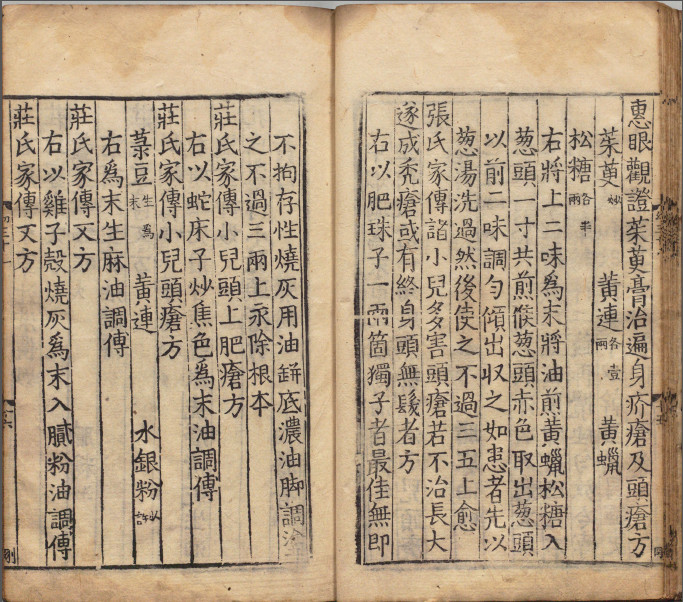 惠眼觀證茱萸膏治遍身疥瘡及頭瘡方
茱萸炒 黃連各壹兩 黃蠟
松糖各半兩
右將上二味爲末將油煎黃蠟松糖入
葱頭一寸共煎候葱頭赤色取出葱頭
以前二味調勻傾出収之如患者先以
葱湯洗過然後使之不過三五上愈
張氏家傳諸小兒多害頭瘡若不治長大
遂成禿瘡或有終身頭無髮者方
右以肥珠子一兩箇獨子者最佳無即
不拘存性燒灰用油缾底濃油脚調塗
之不過三兩上永除根本
莊氏家傳小兒頭上肥瘡方
右以蛇床子炒焦色爲末油調傅
莊氏家傳小兒頭瘡方
菉豆生爲末 黃連 水銀粉少許
右爲末生麻油調傅
莊氏家傳又方
右以雞子殼燒灰爲末入膩粉油調傅
莊氏家傳又方